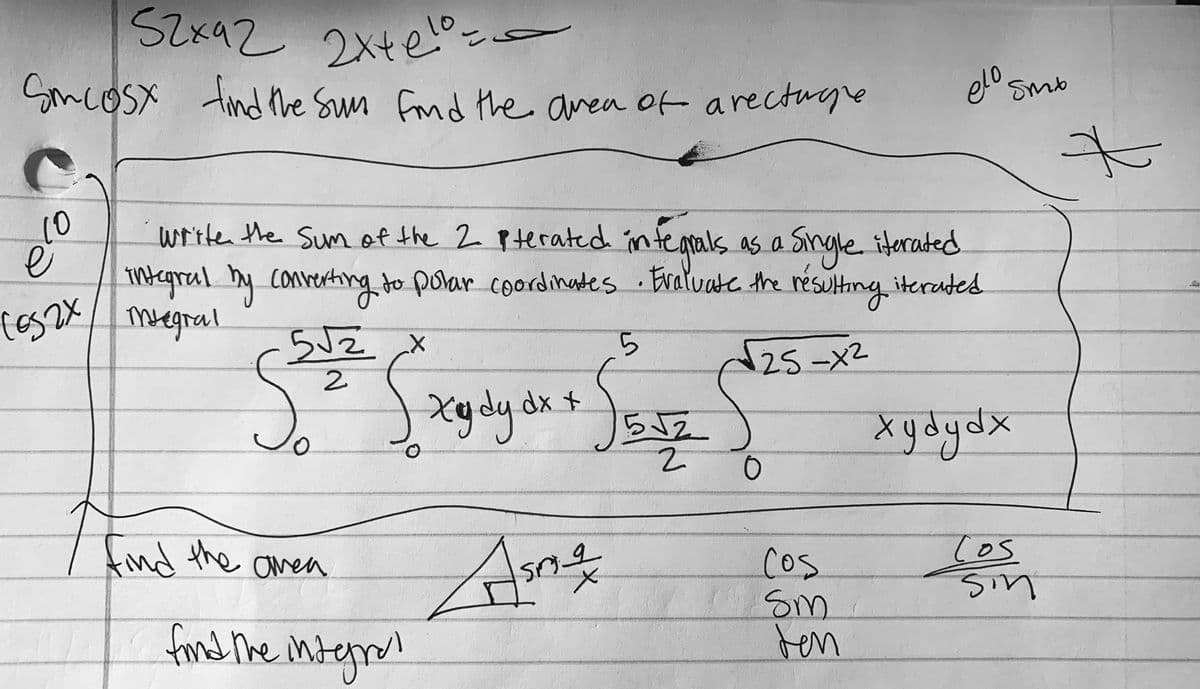 S2x92 2x+e^10=
Smcosx find the Sum Find the area of a rectangle
e^10 smb
e^10
write the Sum of the 2 Iterated integrals as a Single iterated
integral by converting to polar coordinates. Evaluate the resulting iterated
cos2x integral
∫_0^{5√2/2} ∫_0^x xydydx + ∫_{5√2/2}^5 ∫_0^{√25-x2} xydydx
find the area
cos
cos
sin
sin
find the integral
ten